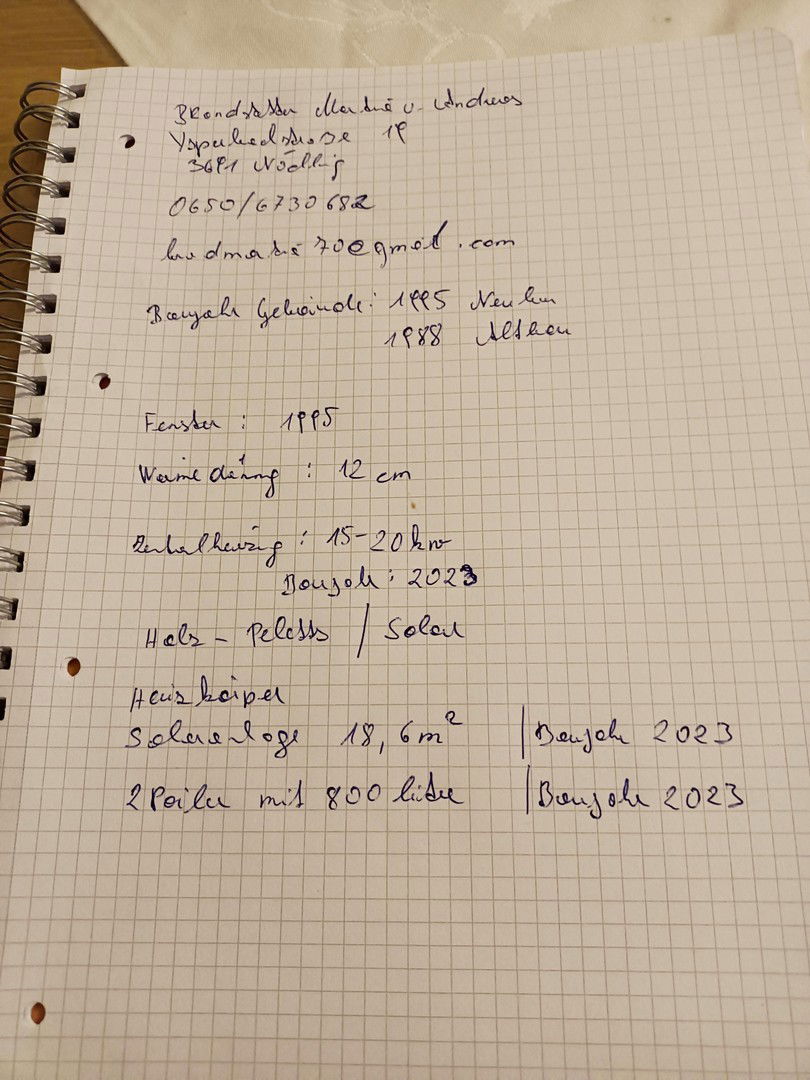 Brandstetter Martina u. Andreas
Ysperbachstrasse 19
3691 Nöchling
0650/6730682
70@gmail.com
Baujahr Gebäude: 1995 Neubau
1988 Altbau
Fenster : 1995
Wärmedämmung : 12 cm
Zentralheizung : 15-20 kw
Baujahr : 2023
Holz - Pelets / Solar
Heizkörper
Solaranlage 18,6m² | Baujahr 2023
2 Poiler mit 800 liter | Baujahr 2023